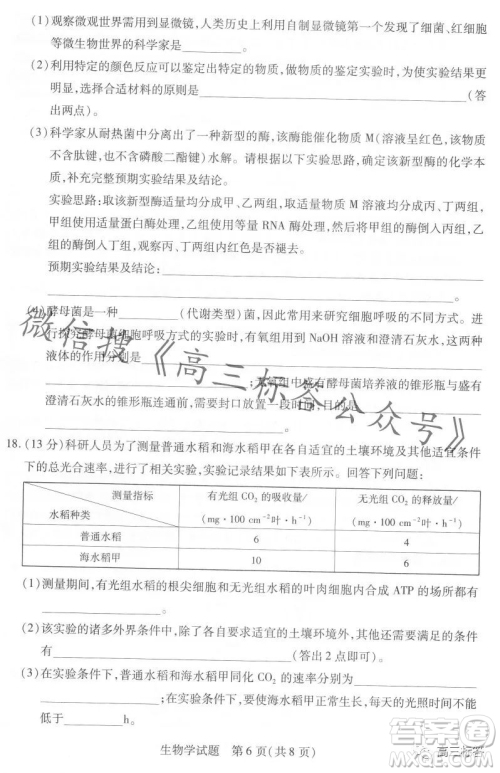 (1)观察微观世界需用到显微镜,人类历史上利用自制显微镜第一个发现了细菌、红细胞
等微生物世界的科学家是________。
(2)利用特定的颜色反应可以鉴定出特定的物质,做物质的鉴定实验时,为使实验结果更
明显,选择合适材料的原则是________(答
出两点)。
(3)科学家从耐热菌中分离出了一种新型的酶,该酶能催化物质M(溶液呈红色,该物质
不含肽键,也不含磷酸二酯键)水解。请根据以下实验思路,确定该新型酶的化学本
质,补充完整预期其结果及结论。
实验思路:取该新型酶适量均分成甲、乙两组,取适量物质M溶液均分成丙、丁两组,
甲组使用适量蛋白酶处理,乙组使用等量RNA酶处理,然后将甲组的酶倒入丙组,乙
组的酶倒入丁组,观察丙、丁两组的溶液中红色是否褪去。
预期实验结果及结论:________
________。
(4)酵母菌是一种________(代谢类型)菌,因此常用来研究细胞呼吸的不同方式。进
行探究酵母菌细胞呼吸方式的实验时,有氧组用到NaOH溶液和澄清石灰水,这两种
液体的作用分别是________
________;无氧组中盛有酵母菌培养液的锥形瓶与盛有
澄清石灰水的锥形瓶连通前,需封口放置一段时间,目的是________。
微信搜《高三标答公众号》
18.(13分)科研人员为了测量普通水稻和海水稻甲在各自适宜的土壤环境及其他适宜条件
下的总光合速率,进行了相关实验,实验记录结果如下表所示。回答下列问题:
测量指标 有光组CO₂的吸收量/ 无光组CO₂的释放量/
水稻种类 (mg·100 cm⁻²叶·h⁻¹) (mg·100 cm⁻²叶·h⁻¹)
普通水稻 6 4
海水稻甲 10 6
(1)测量期间,有光组水稻的根尖细胞和无光组水稻的叶肉细胞内合成ATP的场所都有
________。
(2)该实验的诸多外界条件中,除了要求适宜的土壤环境外,其他要求适宜的外界条件
有________(答出2点即可)。
(3)在实验条件下,普通水稻和海水稻甲同化CO₂的速率分别为________
________;在实验条件下,若要使海水稻甲正常生长,每天的光照时间不能
低于________h。
生物学试题 第6页(共8页)
高三标答